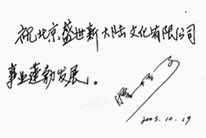 祝北京盛世新大陆文化有限公司
事业蓬勃发展。
2003.10.19